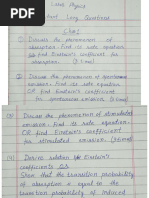 Laser Physics
Important Long Questions
SEM I
(1) Discuss the phenomenon of
absorption. Find its rate equation.
OR find Einstein's
coefficient of absorption. (Normal)
(2) Discuss the phenomenon of spontaneous
emission. Find its rate equation.
OR find Einstein's coefficient
for emission.
(3) Discuss the phenomenon of stimulated
emission. Find its rate equation.
OR find Einstein's
coefficient for stimulated
emission. (Normal)
(4) Derive relation b/w Einstein's
coefficients.
Show that the transition probability
of absorption is equal to the
transition probability of induced